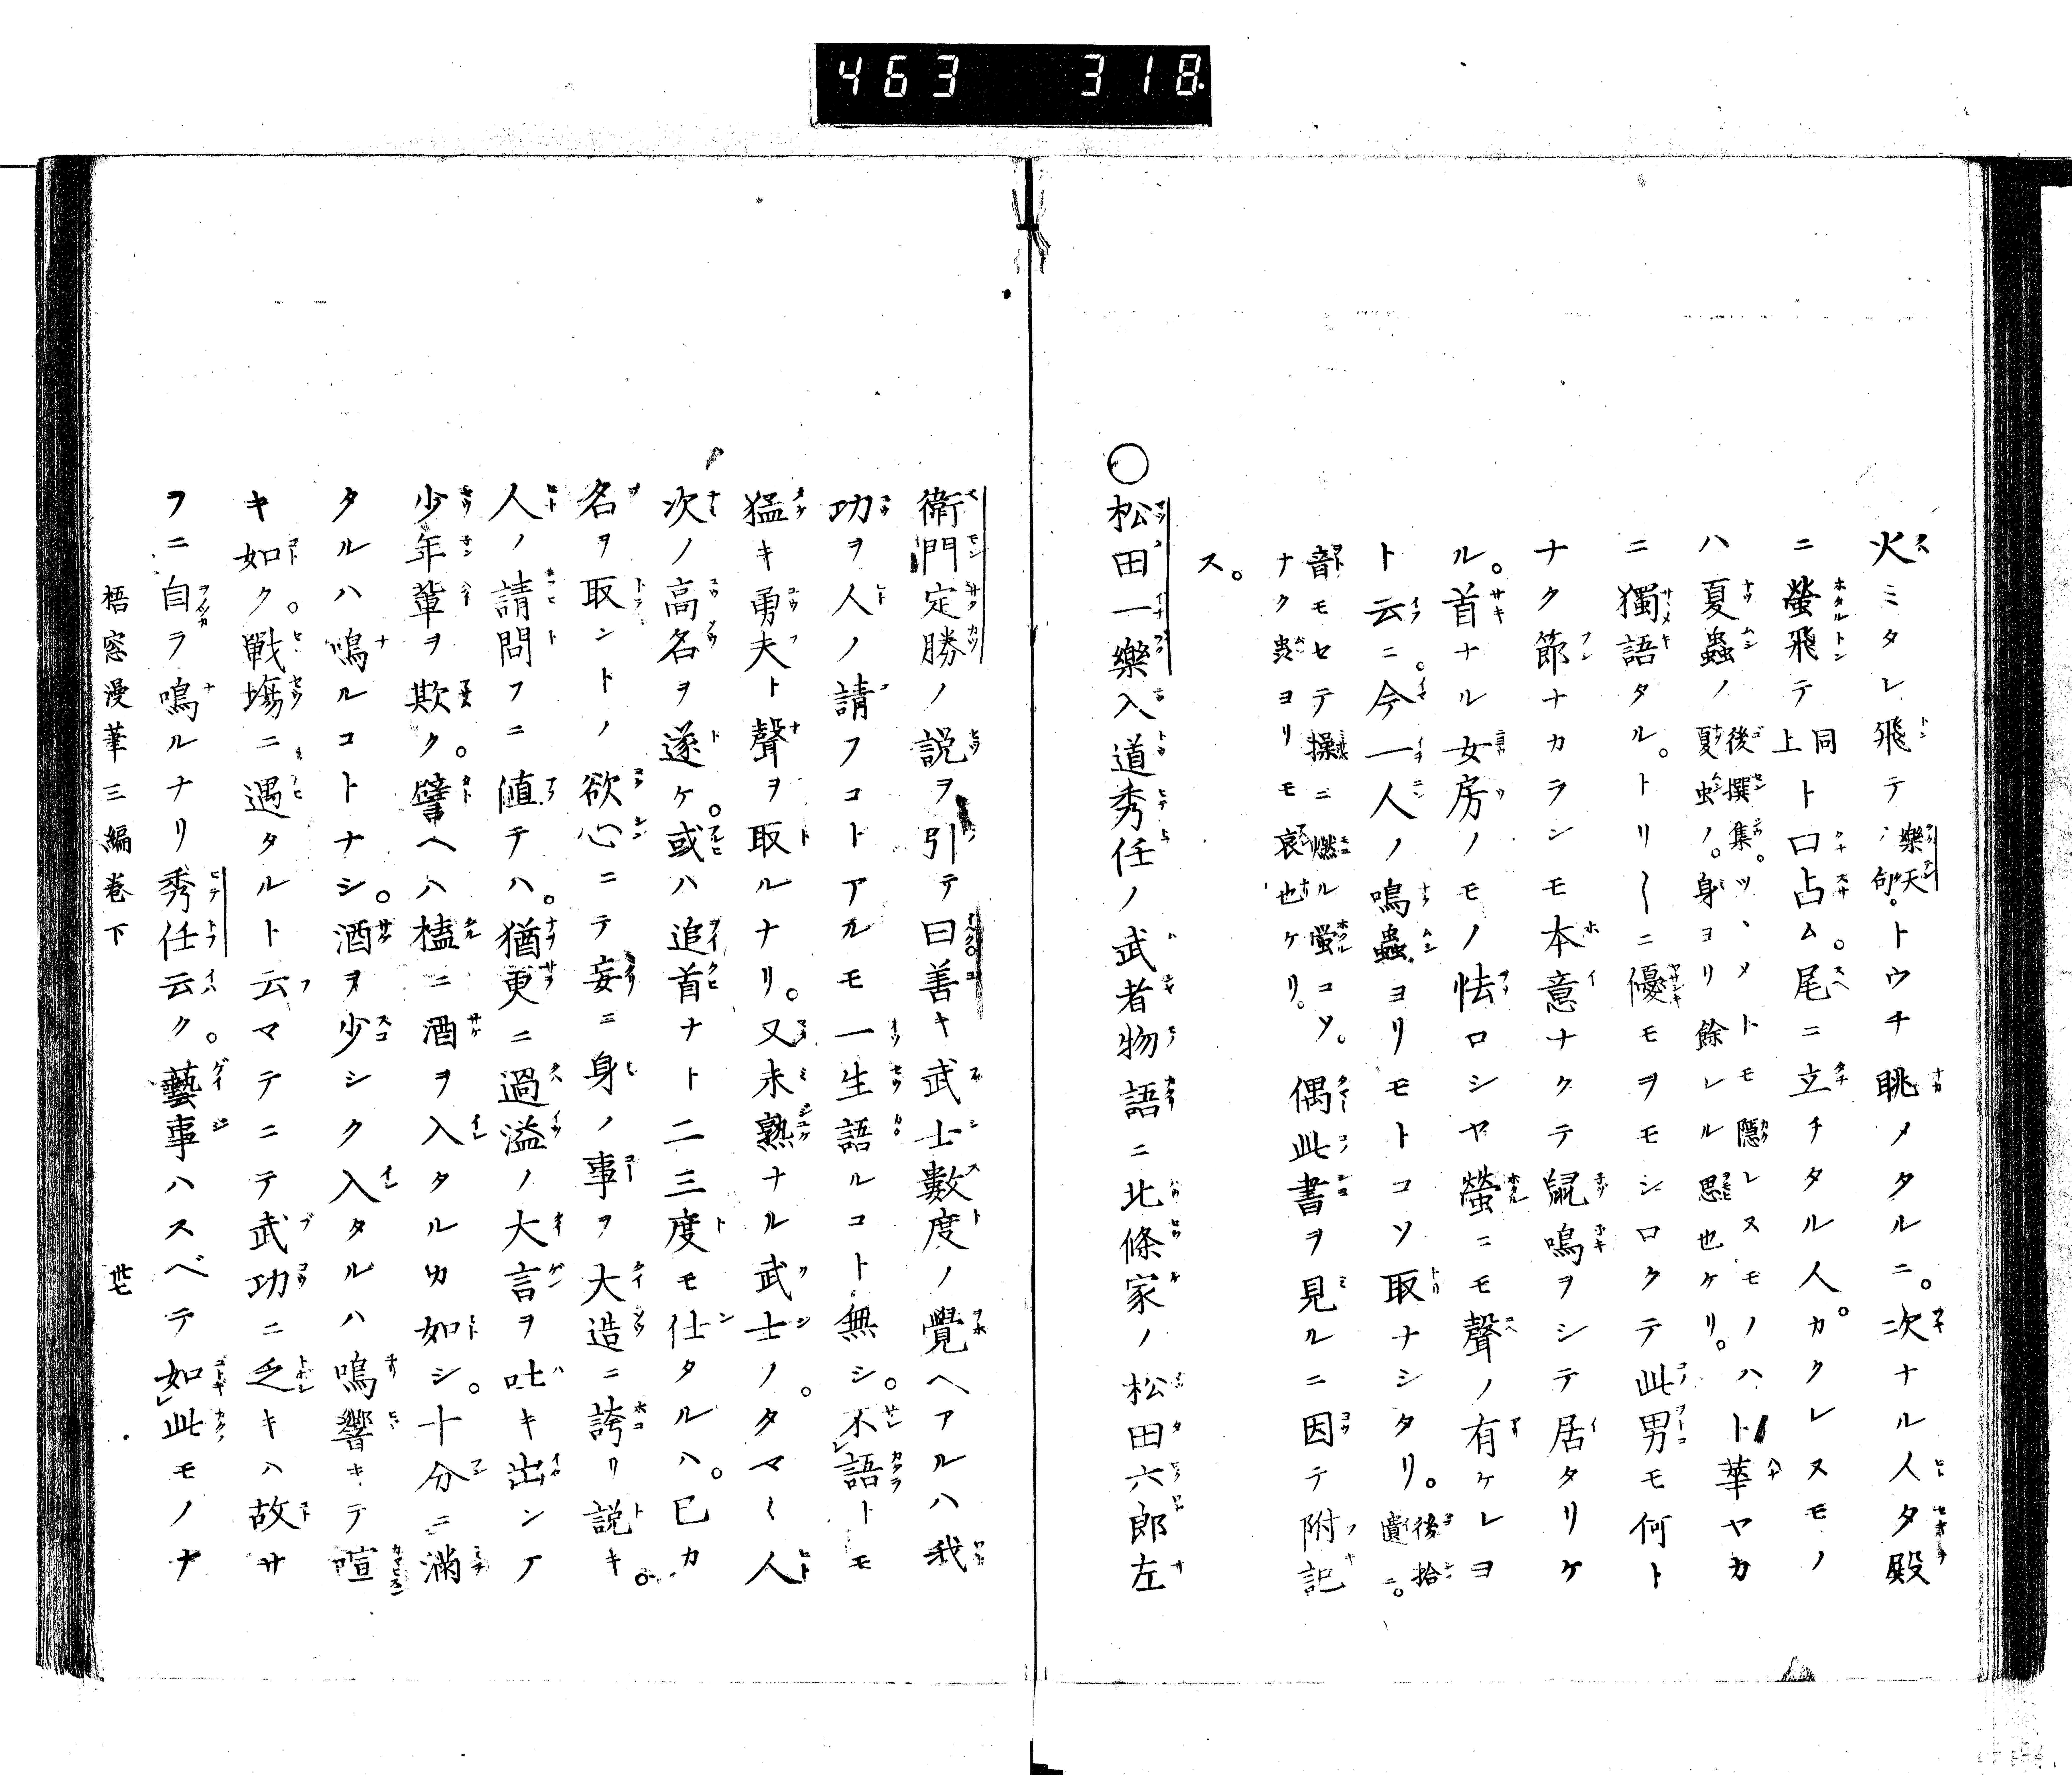 463 318
火ミタレ飛テ、樂天句。トウチ眺メタルニ。次ナル人タ殿
ニ螢飛テ同上ト口占ム。尾ニ立チタル人。カクレスモノ
ハ夏蟲ノ後撰集。ツヽメトモ隱レスモノハ夏虫ノ。身ヨリ餘レル思也ケリ。ト華ヤカ
ニ獨語タル。トリ〱ニ優モヲモシロクテ此男モ何ト
ナク節ナカラシモ本意ナクテ鼠鳴ヲシテ居タリケ
ル。首ナル女房ノモノ怯ロシヤ螢ニモ聲ノ有ケレヨ
ト云ニ。今一人ノ鳴蟲ヨリモトコソ取ナシタリ。後拾遺ニ。
音モセテ操ニ燃ル螢コソ。ナク蟲ヨリモ哀也ケリ。偶此書ヲ見ルニ因テ附記
ス。
〇松田一樂入道秀任ノ武者物語ニ北條家ノ松田六郎左
衛門定勝ノ説ヲ引テ曰善キ武士數度ノ覺ヘアルハ我
功ヲ人ノ請フコトアルモ一生語ルコト無シ。不語トモ
猛キ勇夫ト聲ヲ取ルナリ。又未熟ナル武士ノ。タマ〱人
次ノ高名ヲ遂ケ。或ハ追首ナト二三度モ仕タルハ。已カ
名ヲ取ントノ欲心ニテ妄ニ身ノ事ヲ大造ニ誇リ説キ。
人ノ請問フニ値テハ。猶更ニ過溢ノ大言ヲ吐キ出シテ
少年輩ヲ欺ク。譬ヘハ榼ニ酒ヲ入タルカ如シ。十分ニ滿
タルハ鳴ルコトナシ。酒ヲ少シク入タルハ鳴響キテ喧
キ如ク。戰塲ニ遇タルト云マテニテ武功ニ乏キハ故サ
フニ自ラ鳴ルナリ秀任云ク。藝事ハスベテ如此モノナ
梧窓漫筆三編卷下 卅七